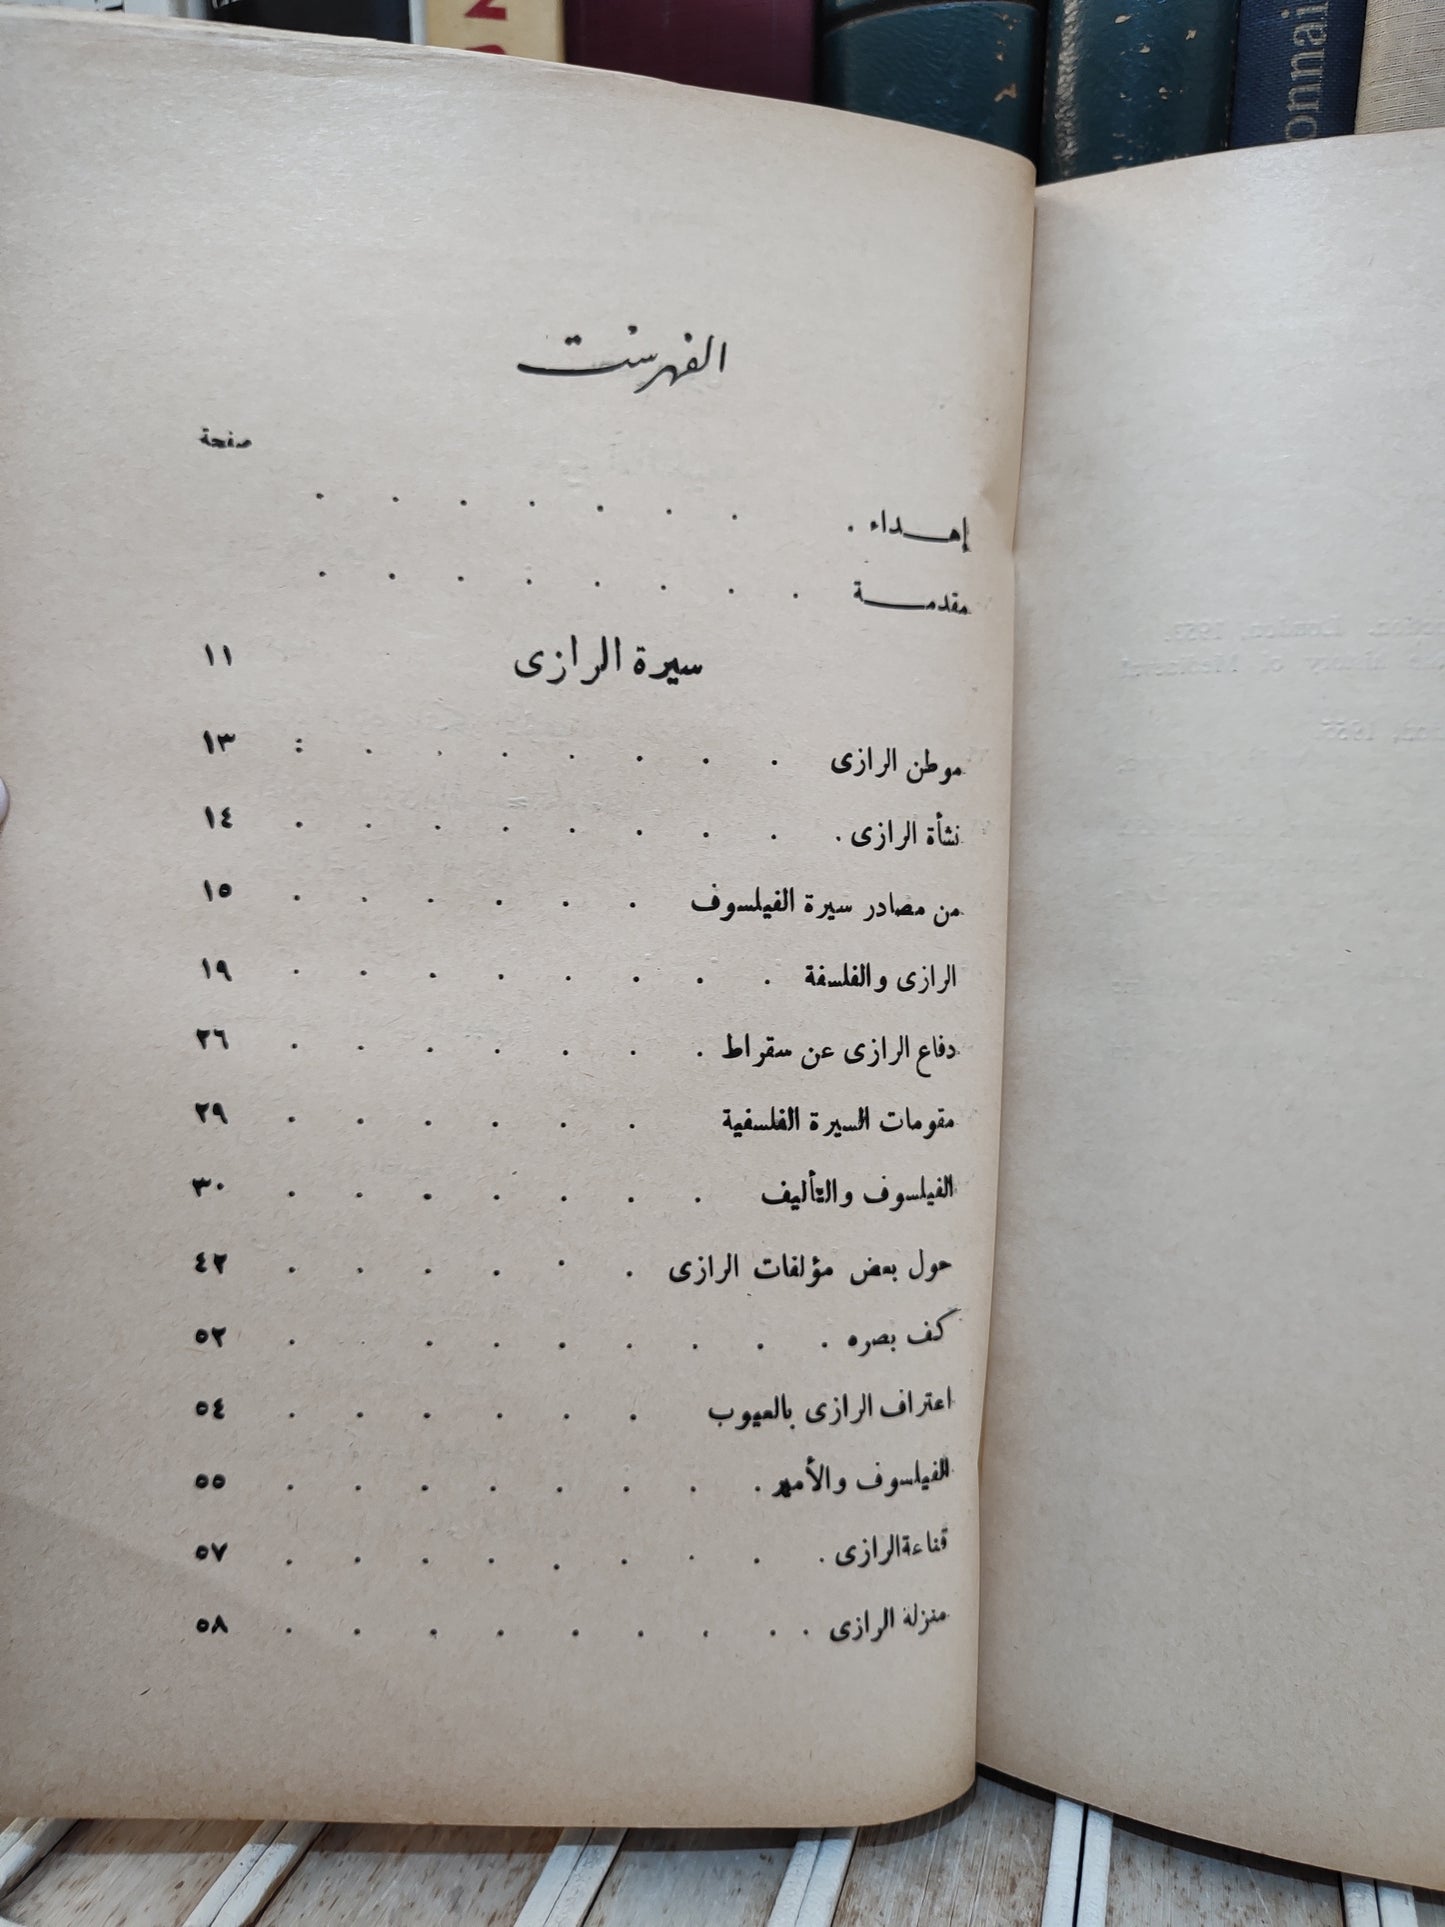 onnai
الفهرست
صفحة
إهداء . . . . . . . .
مقدمة . . . . . . . .
سيرة الرازى ١١
موطن الرازى . . . . . . . : ١٣
نشأة الرازى . . . . . . . . . ١٤
من مصادر سيرة الفيلسوف . . . . . . ١٥
الرازى والفلسفة . . . . . . . . ١٩
دفاع الرازى عن سقراط . . . . . . . ٢٦
مقومات السيرة الفلسفية . . . . . . ٢٩
الفيلسوف والتأليف . . . . . . . ٣٠
حول بعض مؤلفات الرازى . . . . . . ٤٢
كف بصره . . . . . . . . ٥٢
اعتراف الرازى بالعيوب . . . . . . ٥٤
الفيلسوف والأمير . . . . . . . . ٥٥
قناعة الرازى . . . . . . . . . ٥٧
منزلة الرازى . . . . . . . . . ٥٨